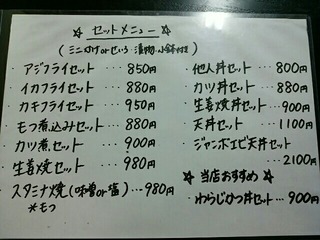 ☆ セットメニュー ☆
(ミニかけorせいろ・漬物・小鉢付き)
アジフライセット ・・・ 850円
イカフライセット ・・・ 880円
カキフライセット ・・・ 950円
もつ煮込みセット ・・・ 880円
カツ煮セット ・・・ 900円
生姜焼セット ・・・ 980円
スタミナ焼(味噌or塩) ・・・ 980円
*もつ
他人丼セット ・・・ 800円
カツ丼セット ・・・ 880円
生姜焼丼セット ・・・ 900円
天丼セット ・・・ 1100円
ジャンボエビ天丼セット
・・・ 2100円
☆ 当店おすすめ ☆
わらじかつ丼セット ・・・ 900円